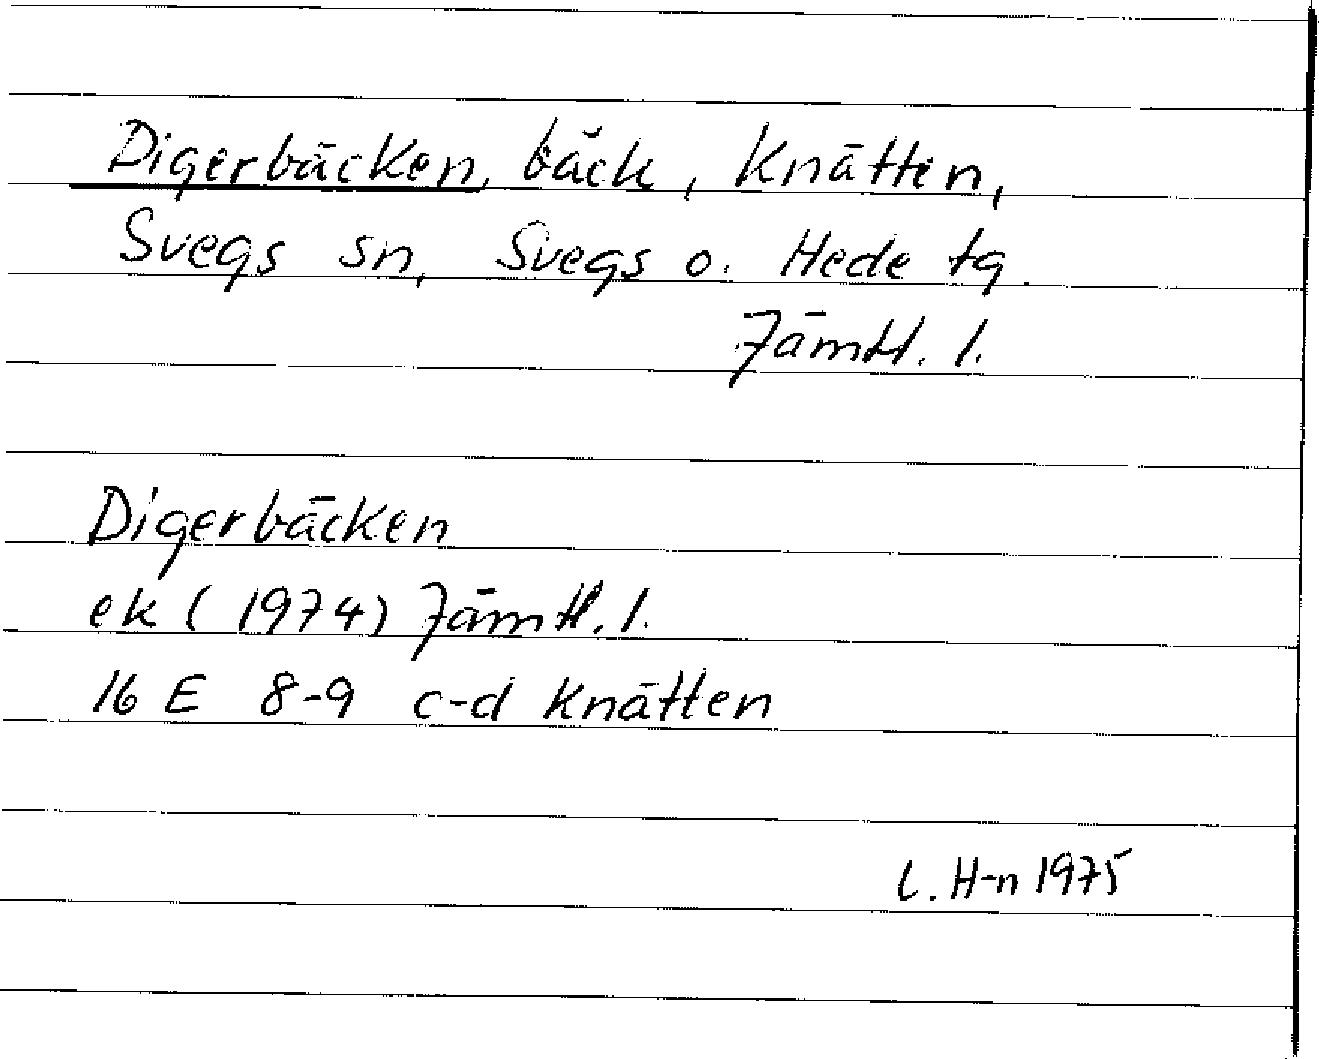 Digerbäcken, bäck, Knätten,
Svegs sn, Svegs o. Hede tg.
Jämtl. l.
Digerbäcken
ek (1974) Jämtl. l.
16 E 8-9 c-d Knätten
L. H-n 1975